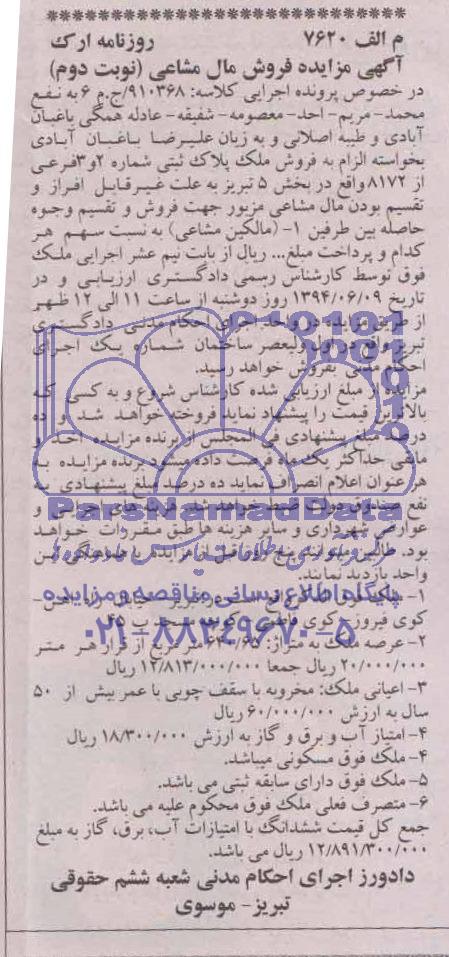 م الف ۷۶۲۰ روزنامه ارک
آگهی مزایده فروش مال مشاعی (نوبت دوم)
در خصوص پرونده اجرایی کلاسه: ۹۱۰۳۶۸/ج.م ۶ به نفع
محمد- مریم- احد- معصومه- شفیقه- عادله همگی باغبان
آبادی و طیبه اصلانی و به زیان علیرضا باغبان آبادی
بخواسته الزام به فروش ملک پلاک ثبتی شماره ۲و۳فرعی
از ۸۱۷۲واقع در بخش ۵ تبریز به علت غیرقابل افراز و
تقسیم بودن مال مشاعی مزبور جهت فروش و تقسیم وجوه
حاصله بین طرفین ۱- (مالکین مشاعی) به نسبت سهم هر
کدام و پرداخت مبلغ... ریال از بابت نیم عشر اجرایی ملک
فوق توسط کارشناس رسمی دادگستری ارزیابی و در
تاریخ ۱۳۹۴/۰۶/۰۹ روز دوشنبه از ساعت ۱۱ الی ۱۲ ظهر
از طریق مزایده در واحد اجرای احکام مدنی دادگستری
تبریز واقع در اول ولیعصر ساختمان شماره یک اجرای
احکام مدنی بفروش خواهد رسید.
مزایده از مبلغ ارزیابی شده کارشناس شروع و به کسی که
بالاترین قیمت را پیشنهاد نماید فروخته خواهد شد و ده
درصد مبلغ پیشنهادی فی المجلس از برنده مزایده اخذ و
مابقی حداکثر یک ماه فرصت داده میشود برنده مزایده به
هر عنوان اعلام انصراف نماید ده درصد مبلغ پیشنهادی به
نفع صندوق دولت ضبط خواهد شد. هزینه های اجرایی و
عوارض شهرداری و سایر هزینه ها طبق مقررات خواهد
بود. طالبین میتوانند پنج روز قبل از مزایده با هماهنگی این
واحد بازدید نمایند.
۱- ملک فوق الذکر واقع است در تبریز- خیابان راه آهن-
کوی فیروز- کوی فاطمی- کوی مسجد پ ۴۵
۲- عرصه ملک به متراژ: ۶۴۰/۶۵ متر مربع از قرار هر متر
۲۰/۰۰۰/۰۰۰ ریال جمعا ۱۲/۸۱۳/۰۰۰/۰۰۰ ریال
۳- اعیانی ملک: مخروبه با سقف چوبی با عمر بیش از ۵۰
سال به ارزش ۶۰/۰۰۰/۰۰۰ ریال
۴- امتیاز آب و برق و گاز به ارزش ۱۸/۳۰۰/۰۰۰ ریال
۴- ملک فوق مسکونی میباشد.
۵- ملک فوق دارای سابقه ثبتی می باشد.
۶- متصرف فعلی ملک فوق محکوم علیه می باشد.
جمع کل قیمت ششدانگ با امتیازات آب، برق، گاز به مبلغ
۱۲/۸۹۱/۳۰۰/۰۰۰ ریال می باشد.
دادورز اجرای احکام مدنی شعبه ششم حقوقی
تبریز- موسوی
ParsNamadData
پایگاه اطلاع رسانی مناقصه و مزایده
۰۲۱-۸۸۳۴۹۶۷۰-۵